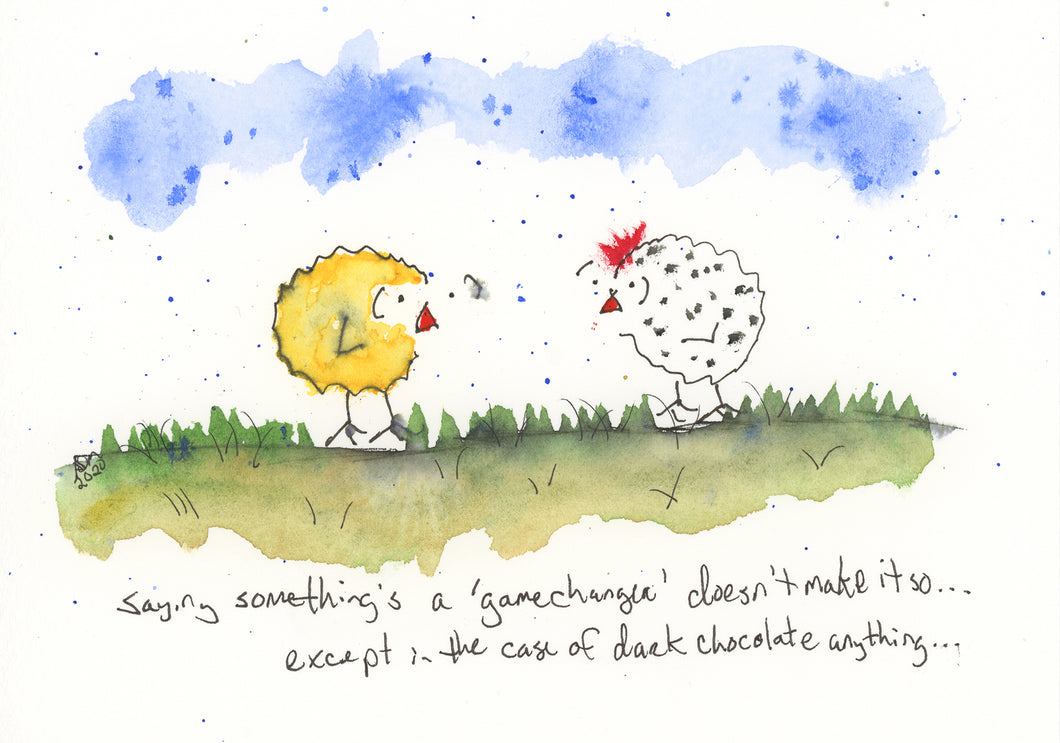 2020
saying something's a 'gamechanger' doesn't make it so...
except in the case of dark chocolate anything...